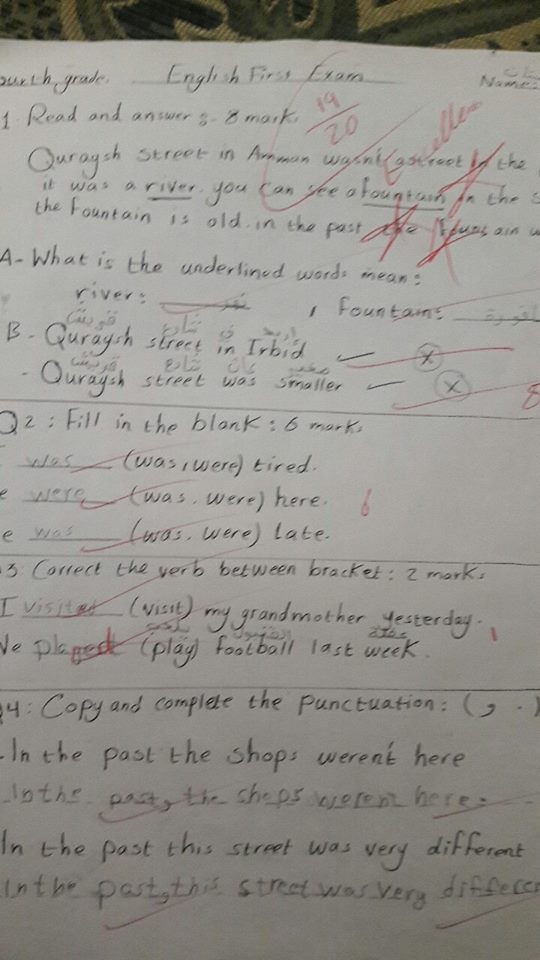 ourth grade. English First Exam Name:
19
20
Excellen
1. Read and answer :- 8 mark.
Quraysh street in Amman wasn't a street in the
it was a river. you can see a fountain in the s
the fountain is old. in the past the foun ain w
A- What is the underlined words mean:
river: نهر , Fountain:
قريش شارع في اربد
B- Quraysh street in Irbid ✓ (x)
قريش شارع كان صغير
- Quraysh street was smaller ✓ (x)
8
Q2: Fill in the blank: 6 mark.
was (was, were) tired.
e were (was. were) here. 6
e was (was. were) late.
3. Correct the verb between bracket: 2 mark.
I visited (visit) my grandmother yesterday. 1
يلعب
We played (play) football last week.
4: Copy and complete the punctuation: ( , . )
-In the past the shops weren't here
In the past, the shops weren't here.
In the past this street was very different
In the past, this street was very differen